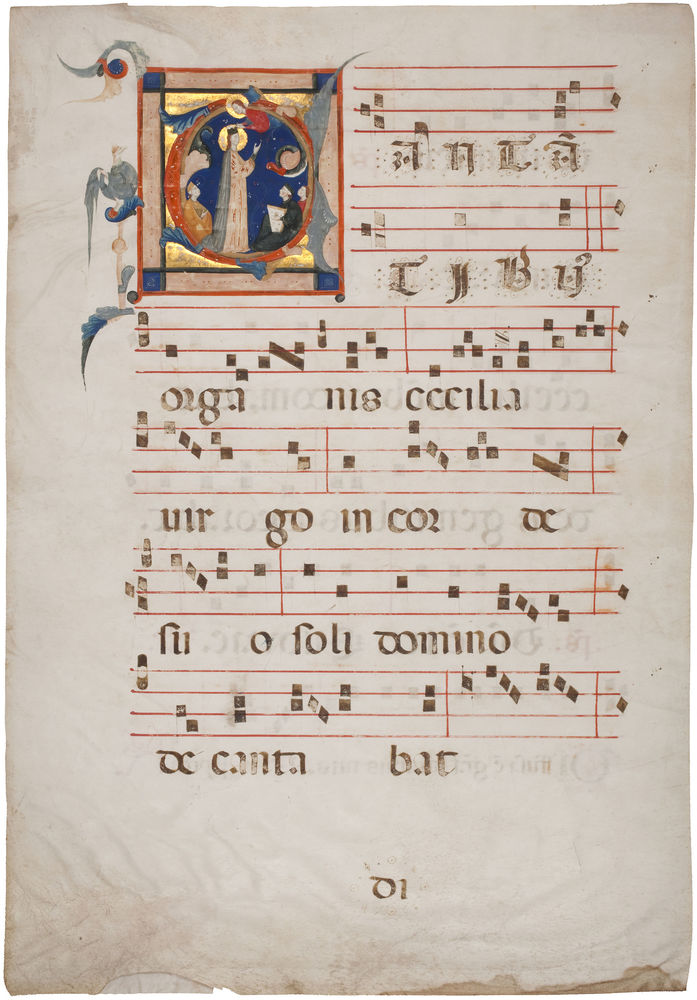 CANTĀ
TIBUS
orga nis cecilia
uir go in cor de
su o soli domino
de canta bat
di